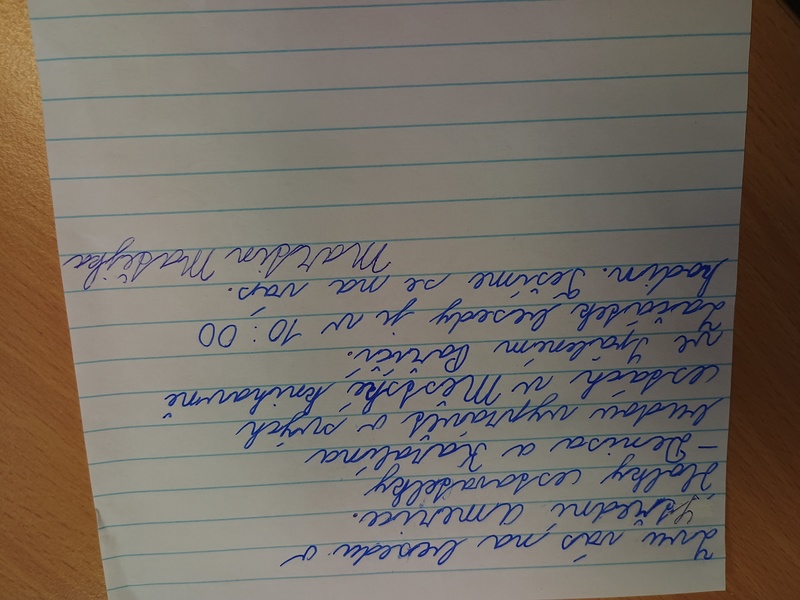 Zvu vás na besedu o
Střední Americe.
Holky cestovatelky
- Denisa a Kařolína
budou vyprávět o svých
cestách v Městské knihovně
ve Spáleném Poříčí.
Začátek besedy je v 10:00
hodin. Těšíme se na vás.
Martin Matějka